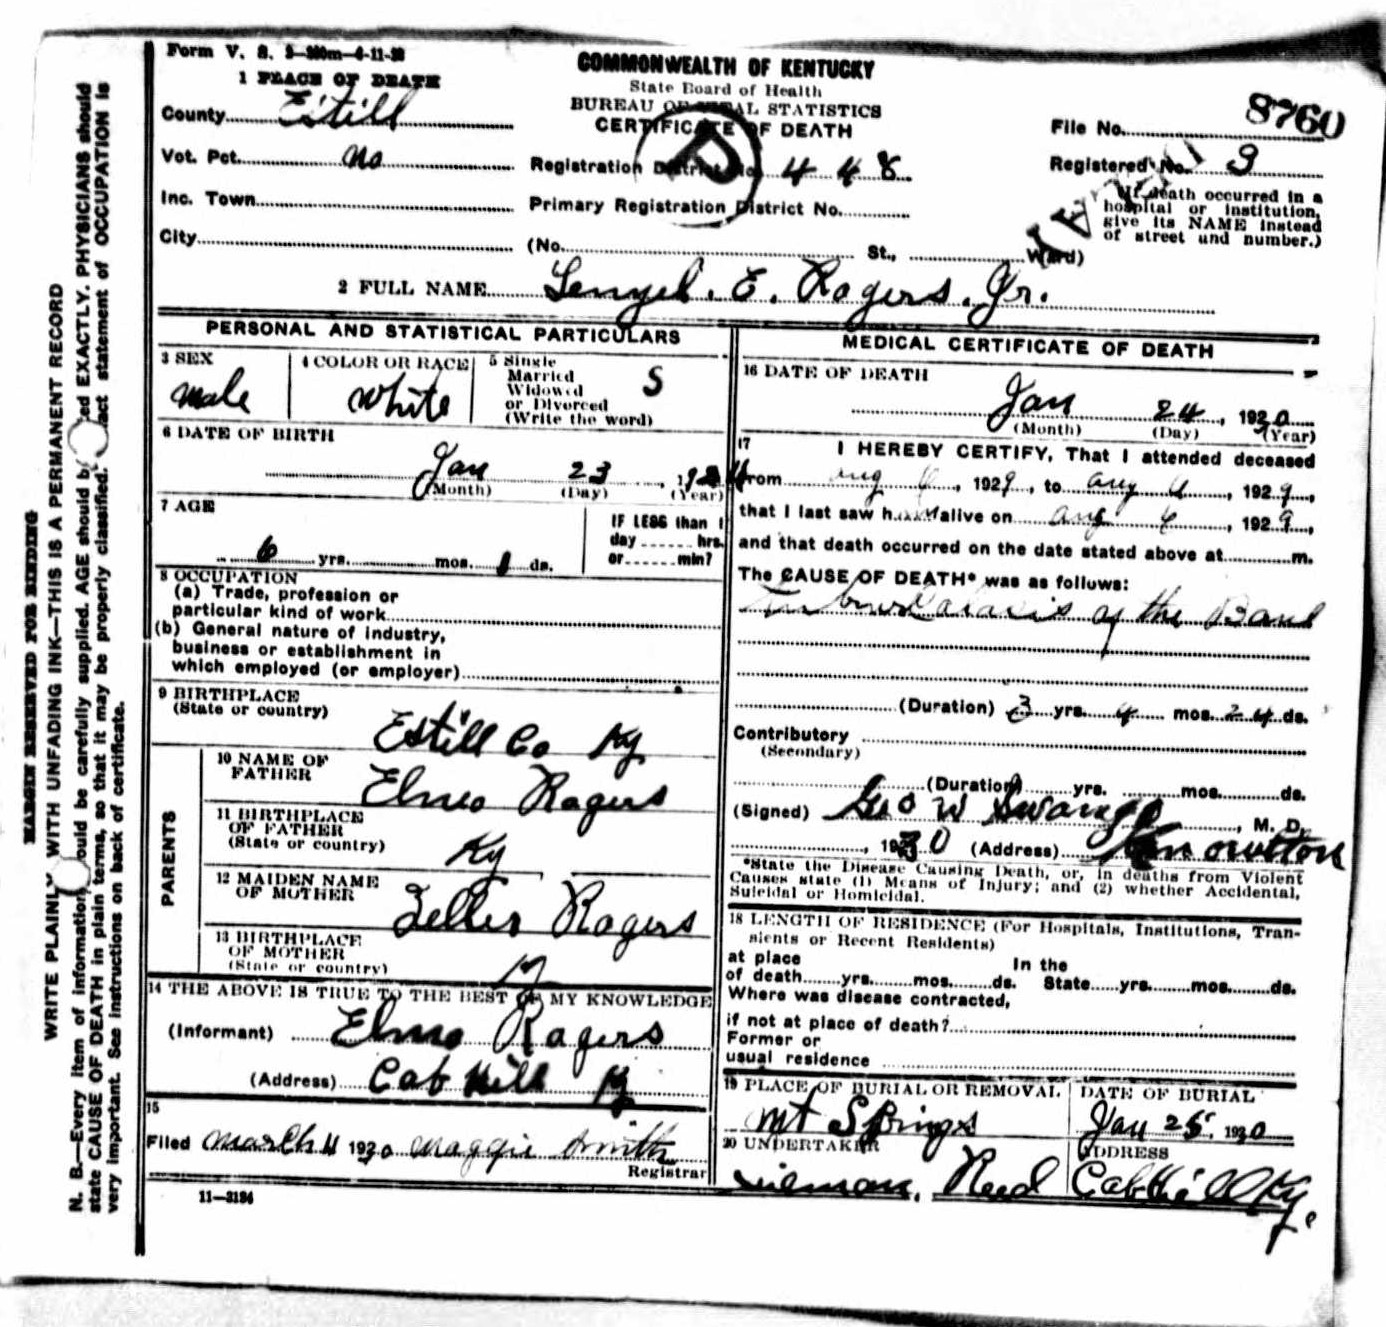 Form V. S.
1 PLACE OF DEATH
COMMONWEALTH OF KENTUCKY
State Board of Health
BUREAU OF VITAL STATISTICS
CERTIFICATE OF DEATH
County Estill
Vot. Pct. No
Inc. Town
City
Registration District No. 448
Primary Registration District No.
(No. St., Ward)
File No. 8760
Registered No. 3
If death occurred in a
hospital or institution,
give its NAME instead
of street and number.)
DELAY
P
2 FULL NAME E. Rogers. Jr.
PERSONAL AND STATISTICAL PARTICULARS
3 SEX
male
4 COLOR OR RACE
white
5 Single
Married
Widowed
or Divorced
(Write the word)
S
6 DATE OF BIRTH
Jan 23, 192
(Month) (Day) (Year)
7 AGE
6 yrs. mos. 1 ds.
IF LESS than 1
day hrs.
or min?
8 OCCUPATION
(a) Trade, profession or
particular kind of work
(b) General nature of industry,
business or establishment in
which employed (or employer)
9 BIRTHPLACE
(State or country)
Estill Co Ky
PARENTS
10 NAME OF
FATHER
Elmo Rogers
11 BIRTHPLACE
OF FATHER
(State or country)
Ky
12 MAIDEN NAME
OF MOTHER
Rogers
13 BIRTHPLACE
OF MOTHER
(State or country)
Ky
14 THE ABOVE IS TRUE TO THE BEST OF MY KNOWLEDGE
(Informant) Elmo Rogers
(Address) Cob Hill Ky
15
Filed March 4 1930 Maggie Smith
Registrar
11—3184
MEDICAL CERTIFICATE OF DEATH
16 DATE OF DEATH
Jan 24, 1930
(Month) (Day) (Year)
17
I HEREBY CERTIFY, That I attended deceased
from aug 6, 1929, to aug, 1929,
that I last saw h alive on aug 6, 1929,
and that death occurred on the date stated above at m.
The CAUSE OF DEATH* was as follows:
of the
(Duration) 3 yrs. 4 mos. 24 ds.
Contributory
(Secondary)
(Duration) yrs. mos. ds.
(Signed) Geo W, M. D.
, 1930 (Address)
*State the Disease Causing Death, or, in deaths from Violent
Causes state (1) Means of Injury; and (2) whether Accidental,
Suicidal or Homicidal.
18 LENGTH OF RESIDENCE (For Hospitals, Institutions, Tran-
sients or Recent Residents)
at place
of death yrs. mos. ds.
In the
State yrs. mos. ds.
Where was disease contracted,
if not at place of death?
Former or
usual residence
19 PLACE OF BURIAL OR REMOVAL
Mt Springs
DATE OF BURIAL
Jan 25, 1930
20 UNDERTAKER
Reed
ADDRESS
Cobhill Ky.
MARGIN RESERVED FOR BINDING
WRITE PLAINLY WITH UNFADING INK—THIS IS A PERMANENT RECORD
N. B.—Every item of information should be carefully supplied. AGE should be stated EXACTLY. PHYSICIANS should
state CAUSE OF DEATH in plain terms, so that it may be properly classified. Exact statement of OCCUPATION is
very important. See instructions on back of certificate.